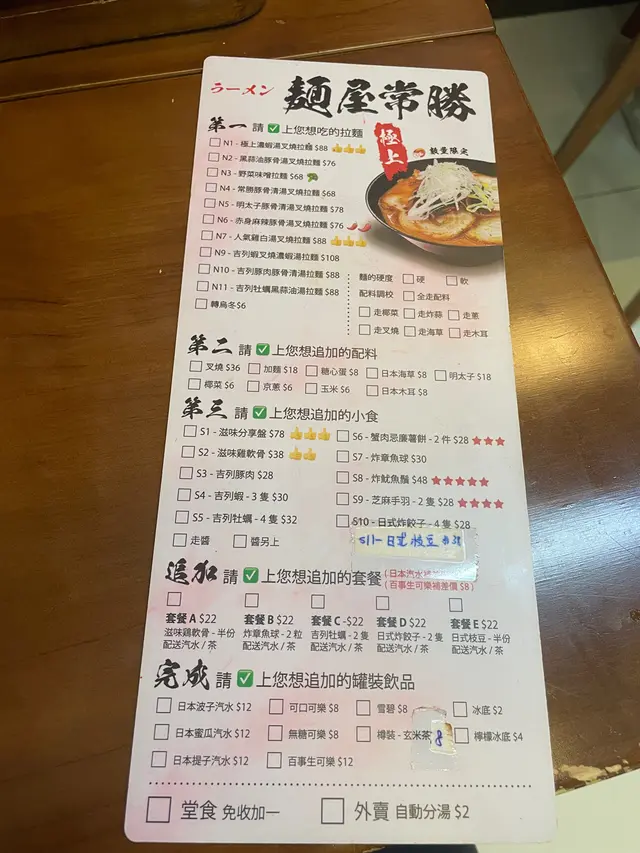 ラーメン 麵屋常勝
第一 請 ✅ 上您想吃的拉麵
極上
數量限定
N1 - 極上濃蝦湯叉燒拉麵 $88
N2 - 黑蒜油豚骨湯叉燒拉麵 $76
N3 - 野菜味噌拉麵 $68
N4 - 常勝豚骨清湯叉燒拉麵 $68
N5 - 明太子豚骨清湯叉燒拉麵 $78
N6 - 赤身麻辣豚骨湯叉燒拉麵 $76
N7 - 人氣雞白湯叉燒拉麵 $88
N9 - 吉列蝦叉燒濃蝦湯拉麵 $108
N10 - 吉列豚肉豚骨清湯拉麵 $88
N11 - 吉列牡蠣黑蒜油湯拉麵 $88
轉烏冬 $6
麵的硬度 硬 軟
配料調校 全走配料
走椰菜 走炸蒜 走蔥
走叉燒 走海草 走木耳
第二 請 ✅ 上您想追加的配料
叉燒 $36 加麵 $18 糖心蛋 $8 日本海草 $8 明太子 $18
椰菜 $6 京蔥 $6 玉米 $6 日本木耳 $8
第三 請 ✅ 上您想追加的小食
S1 - 滋味分享盤 $78
S2 - 滋味雞軟骨 $38
S3 - 吉列豚肉 $28
S4 - 吉列蝦 - 3 隻 $30
S5 - 吉列牡蠣 - 4 隻 $32
走醬 醬另上
S6 - 蟹肉忌廉薯餅 - 2 件 $28 ★★★
S7 - 炸章魚球 $30
S8 - 炸魷魚鬚 $48 ★★★★★
S9 - 芝麻手羽 - 2 隻 $28 ★★★★
S10 - 日式炸餃子 - 4 隻 $28
S11- 日式枝豆 $28
追加 請 ✅ 上您想追加的套餐
(日本汽水
(百事生可樂補差價 $8)
套餐 A $22 套餐 B $22 套餐 C -$22 套餐 D $22 套餐 E $22
滋味鷄軟骨 - 半份 炸章魚球 - 2 粒 吉列牡蠣 - 2 隻 日式炸餃子 - 2 隻 日式枝豆 - 半份
配送汽水 / 茶 配送汽水 / 茶 配送汽水 / 茶 配送汽水 / 茶 配送汽水 / 茶
完成 請 ✅ 上您想追加的罐裝飲品
日本波子汽水 $12 可口可樂 $8 雪碧 $8 冰底 $2
日本蜜瓜汽水 $12 無糖可樂 $8 樽裝 - 玄米茶 8 檸檬冰底 $4
日本提子汽水 $12 百事生可樂 $12
堂食 免收加一 外賣 自動分湯 $2